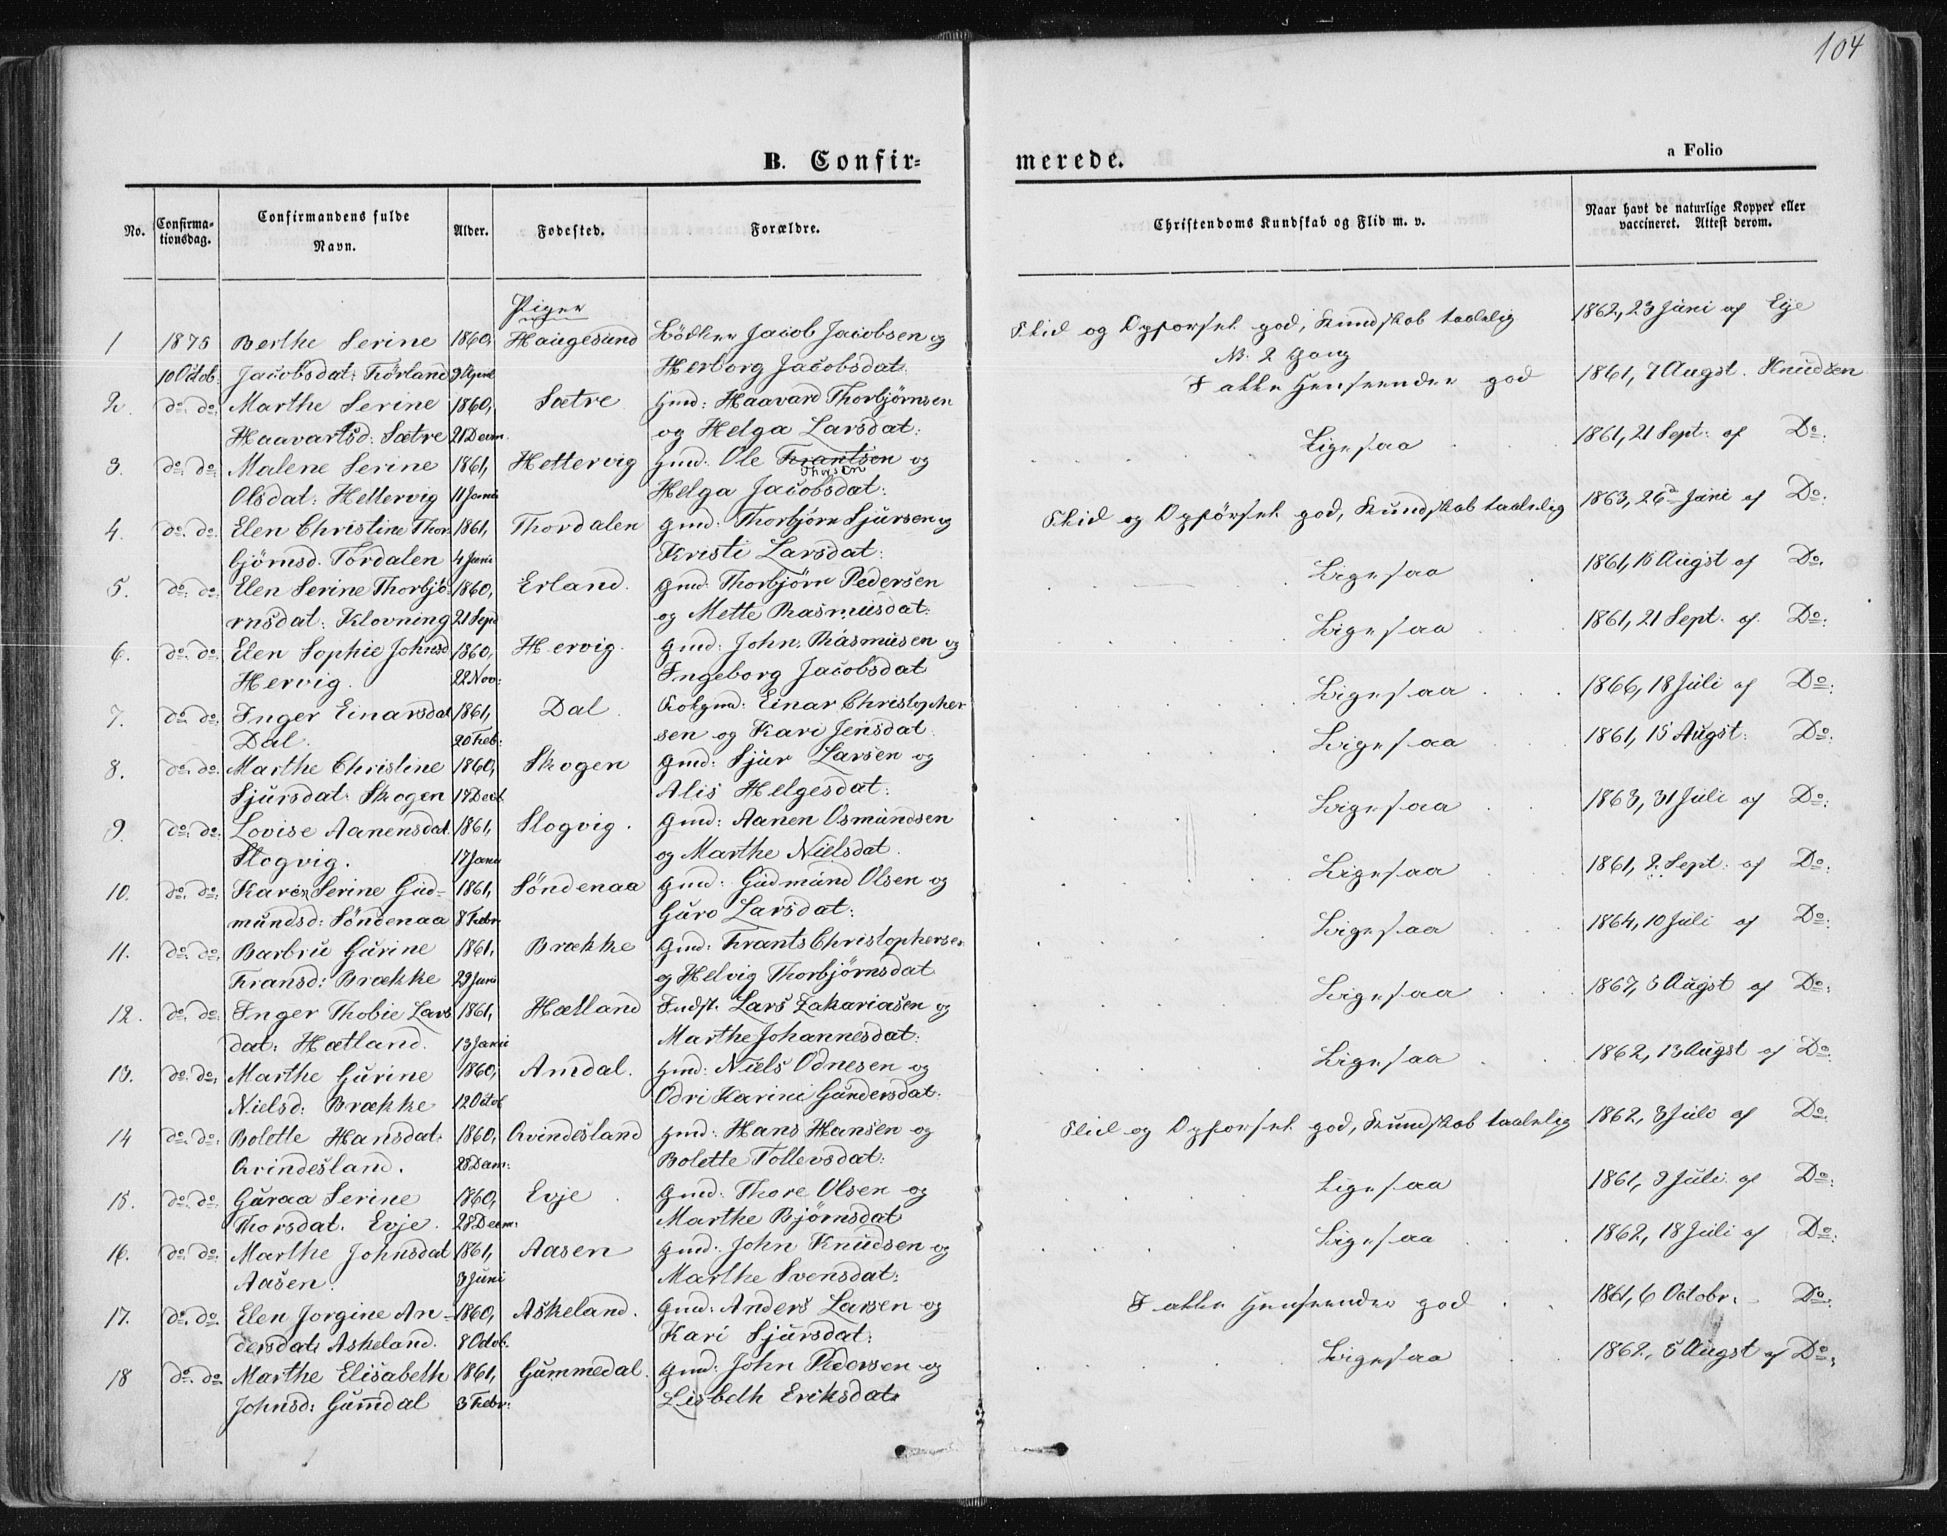 104
B. Confir=
merede.
a Folio
No.
Confirma-
tionsdag.
Confirmandens fulde
Navn.
Alder.
Fødested.
Forældre.
Christendoms Kundskab og Flid m. v.
Naar havt de naturlige Kopper eller
vaccineret. Attest derom.
Piger
1 1875 Berthe Serine 1860, Haugesund Bödker Jacob Jacobsen og
10 Octob. Jacobsdat: Törland 9 April Herborg Jacobsdat.
Flid og Opförsel god, Kundskab taalelig 1862, 23 Juni af Eje
N. 2 Gang
2. do. do. Marthe Serine 1860, Sætre Gmd: Haavard Thorbjörnsen
Haavartsd: Sætre 21 Decm. og Helga Larsdat:
I alle Henseender god 1861, 7 Augst. Knudsen
3. do. do. Malene Serine 1861, Hettervig Gmd. Ole Frantsen og
Thorsen
Olsdat: Hettervig 11 Janu Helga Jacobsdat:
Ligesaa 1861, 21 Sept: af Do:
4. do. do. Elen Christine Thor 1861, Thordalen Gmd: Thorbjörn Sjursen og
björnsd. Tordalen 4 Juni Kristi Larsdat:
Flid og Opförsel god, Kundskab taalelig 1863, 26 Juni af Do.
5. do. do. Elen Serine Thorbjö 1860, Erland. Gmd: Thorbjörn Pedersen
rnsdat: Klovning 21 Sept og Mette Rasmusdat:
Ligesaa 1861, 15 Augst af Do.
6. do. do. Elen Sophie Johnsd 1860, Hervig. Gmd: John Rasmusen og
Hervig. 22 Nov: Ingeborg Jacobsdat
Ligesaa 1861, 21 Sept. af Do:
7. do. do. Inger Einarsdat 1861, Dal. Gmd: Einar Christopher
Dal. 20 Feb: sen og Kari Jensdat.
Ligesaa 1866, 18 Juli af Do:
8. do. do. Marthe Christine 1860, Skogen Gmd: Sjur Larsen og
Sjursdat: Skogen 17 Decb. Alis Helgesdat:
Ligesaa 1861, 15 Augst: Do:
9. do. do. Lovise Aanensdat. 1861, Slogvig. Gmd: Aanen Osmundsen
Slogvig. 17 Janu og Marthe Nielsdat.
Ligesaa 1863, 31 Juli af Do:
10. do. do. Karen Serine Gud- 1861, Söndenaa Gmd: Gudmund Olsen og
mundsd: Söndenaa 8 Febr Guro Larsdat:
Ligesaa 1861, 2 Sept: af Do:
11. do. do. Barbru Gurine 1861, Brække Gmd: Frants Christophersen
Fransd: Brække 29 Juni og Helvig Thorbjörnsdat
Ligesaa 1864, 10 Juli af Do:
12. do. do. Inger Thobie Lars 1861, Hætland Indst. Lars Zakariasen og
dat: Hætland. 13 Janu Marthe Johannesdat:
Ligesaa 1867, 5 Augst af Do:
13. do. do. Marthe Gurine 1860, Amdal. Gmd: Niels Odnesen og
Nielsd: Brække 12 Octob Odri Karine Gundersdat:
Ligesaa 1862, 13 Augst af Do:
14 do. do. Bolette Hansdat: 1860, Qvindesland Gmd: Hans Hansen og
Qvindesland. Bolette Tollevsdat:
Flid og Opförsel god, Kundskab taalelig 1862, 3 Juli af Do:
15. do. do. Guraa Serine 1860, Evje. Gmd: Thore Olsen og
Thorsdat. Evje. 28 Decm: Marthe Björnsdat
Ligesaa 1861, 9 Juli af Do:
16. do. do. Marthe Johnsdat 1861, Aasen Gmd: John Knudsen og
Aasen. 3 Juni Marthe Svensdat:
Ligesaa 1862, 18 Juli af Do:
17. do. do. Elen Jorgine An- 1860, Askeland. Gmd: Anders Larsen og
dersdat: Askeland. 8 Octob. Kari Sjursdat:
I alle Henseender god 1861, 6 Octobr. Do:
18 do. do. Marthe Elisabeth 1861, Gummedal. Gmd: John Pedersen og
Johnsd: Gum̅dal 3 Febr: Lisbeth Eriksdat:
Ligesaa 1862, 5 Augst af Do: